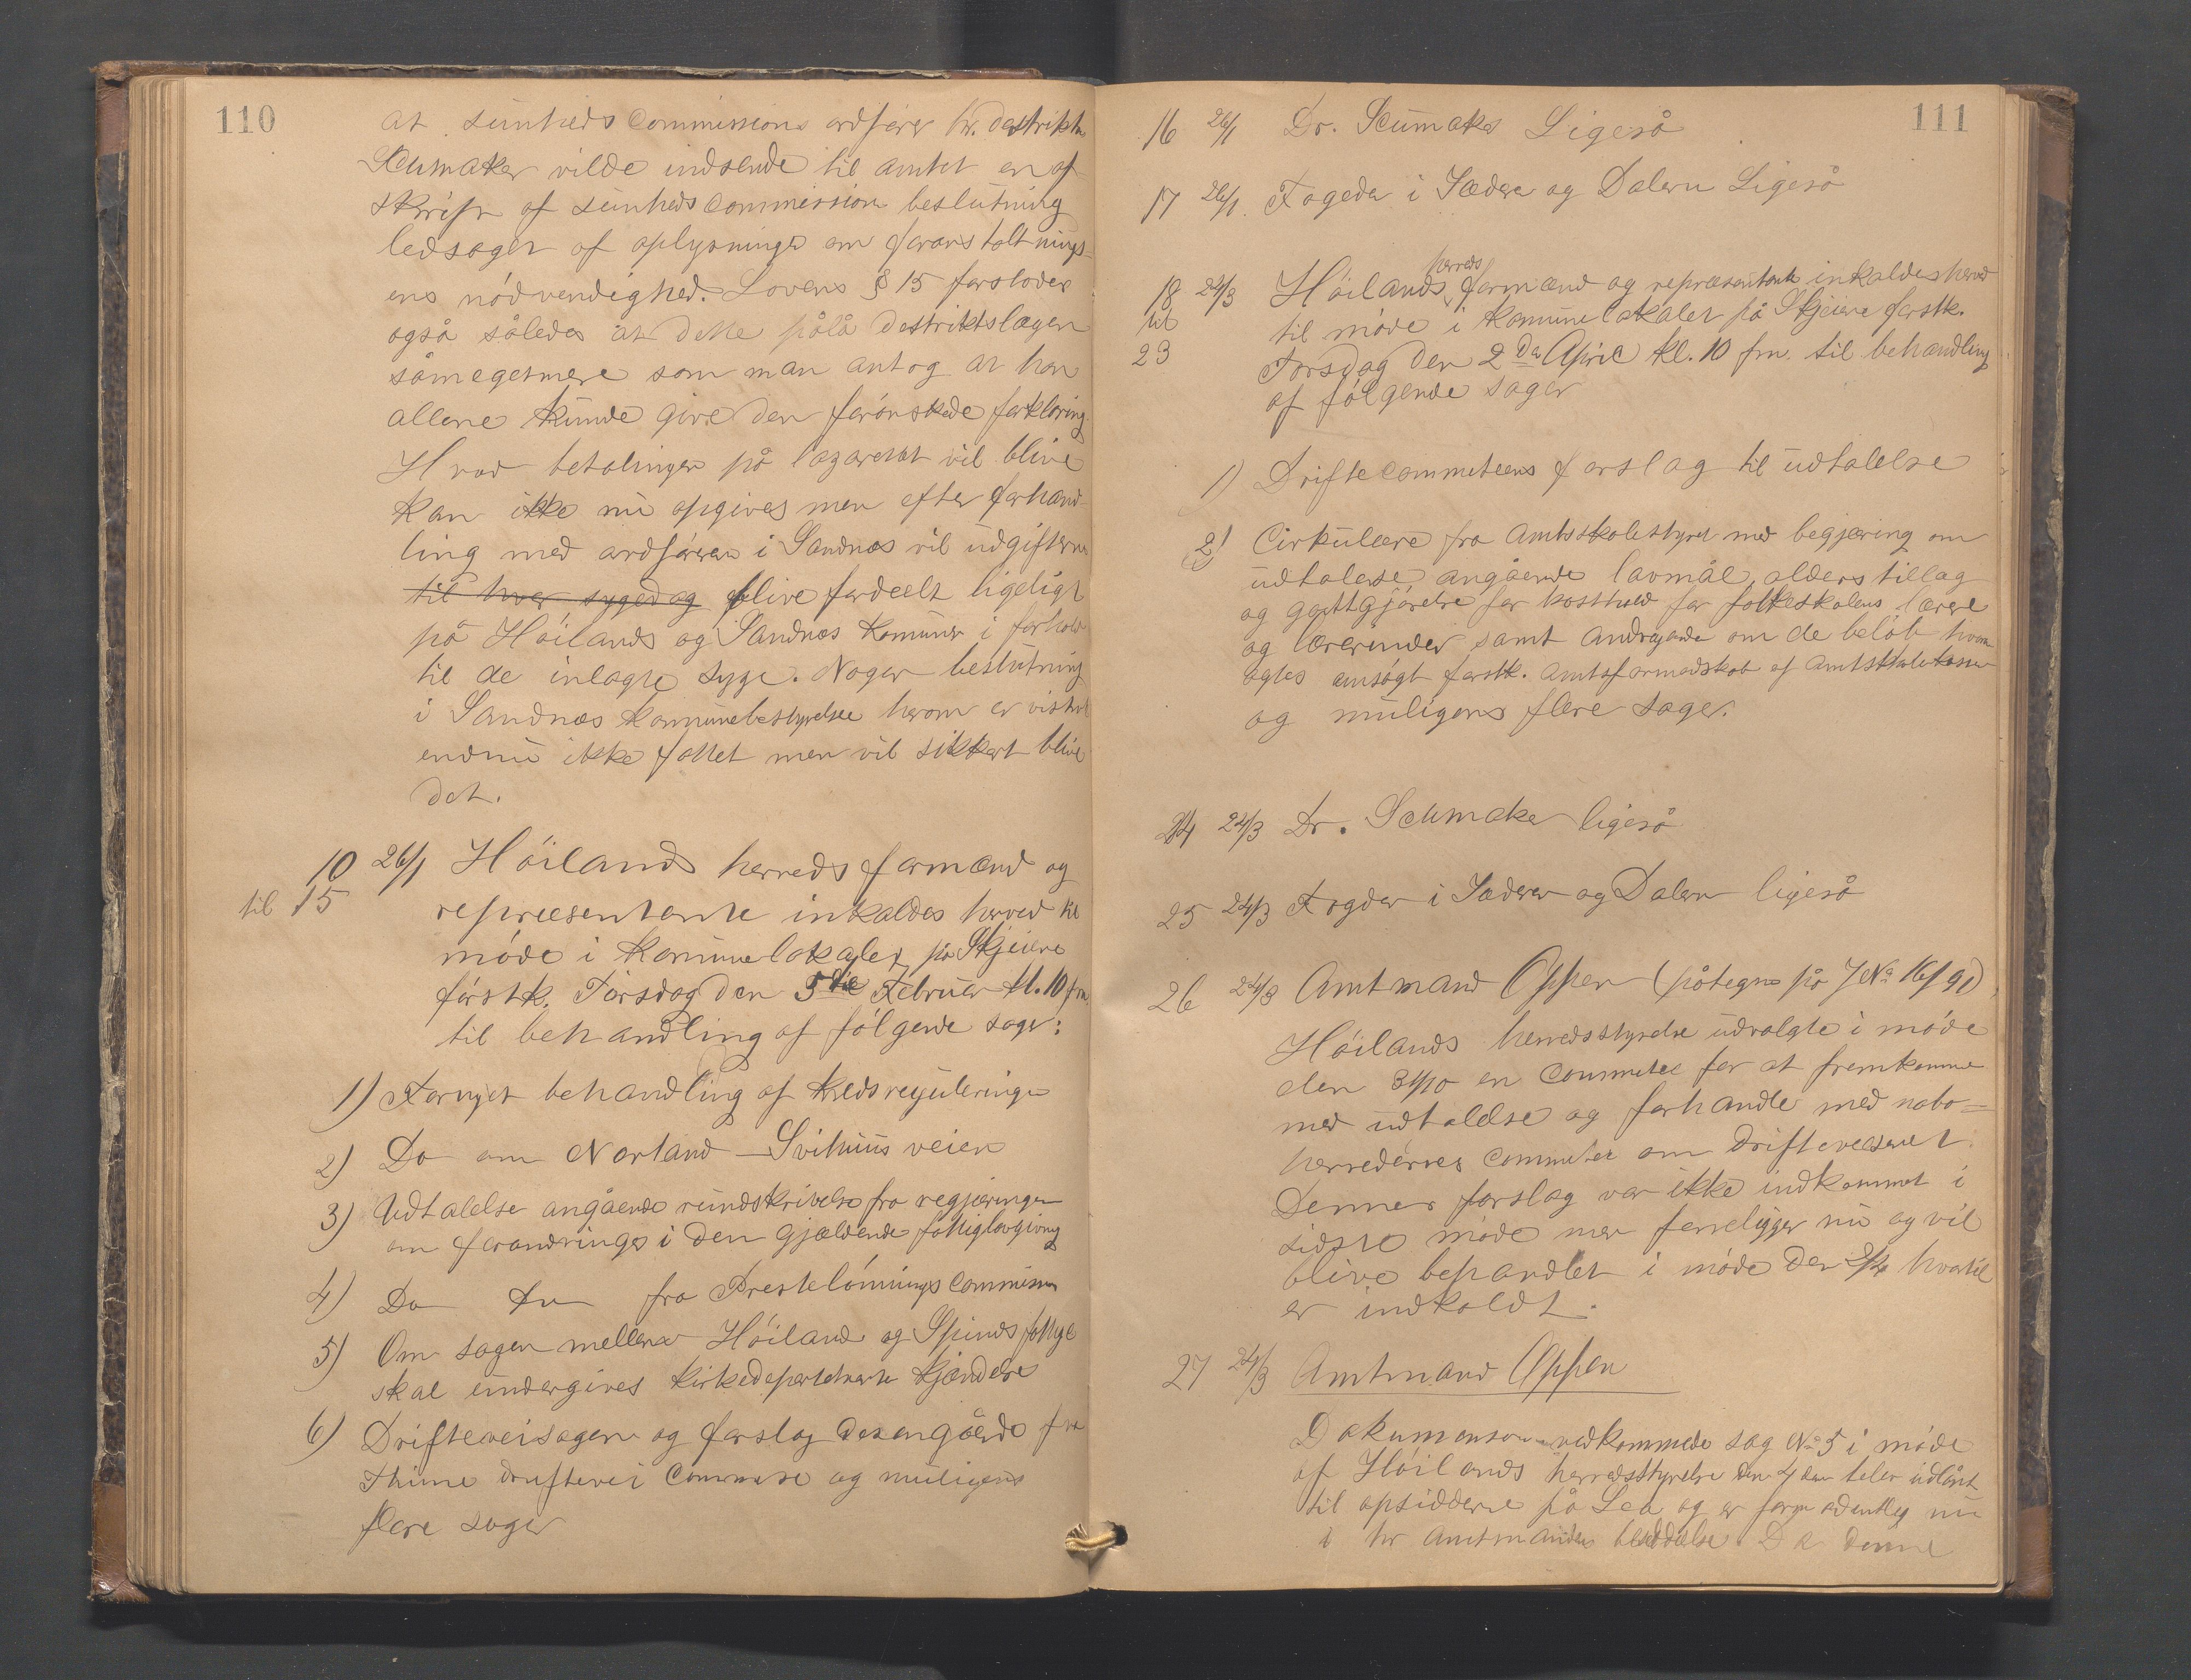 110
at sunheds Commissions ordfører hr. destrikts
Scumaker vilde indsende til amtet en af
skrift af sunheds commissions beslutning
ledsaget af oplysninger om foranstaltnings-
ens nödvendighed. Lovens § 15 forstodes
også således at dette pålå destriktslægen
såmegetmere som man antog at han
allene kunde give den førönskede forklaring.
Hvad betalingen på lazarettet vil blive
kan ikke nu opgives men efter forhand-
ling med ordföreren i Sandnæs vil udgifterne
til hver sygedag blive fordeelt ligeligt
på Höilands og Sandnæs komuner i forhold
til de inlagte syge. Nogen beslutning
i Sandnæs kommunebestyrelse herom er vistnok
endnu ikke fattet men vil sikkert blive
det.
10 26/1 Höilands herreds formænd og
til 15 repræsentante inkaldes herved til
möde i kommunelokalet på Skjeiene
förstk. Torsdag den 5te Februar kl. 10 fm.
til behandling af fölgende sager:
1) Fornyet behandling af kredsreguleringen
2) Do om Norland - Svihuus veien
3) Udtalelse angående rundskrivelse fra regjeringen
om forandringer i den gjældende fattiglovgivning
4) Do do fra Prestelönnings Commission
5) Om sagen mellem Höiland og Spinds fattige
skal undergives kirkedepartementets kjendelse
6) Drifteveisagen og forslag desangående fra
Thime driftevei Commite og muligens
flere sager
111
16 26/1 Dr. Scumaker Ligeså
17 26/1. Fogeden i Jæderen og Dalerne Ligeså
18 24/3 Höilands herreds formænd og repræsentante inkaldes herved
til til möde i Komunelokalet på Skjeiene førstk.
23 Torsdag den 2den April kl. 10 fm. til behandling
af følgende sager
1) Driftecommeteens forslag til udtalelse
2) Cirkulære fra Amtsskolestyret med begjæring om
udtalelse angående lavmål, alders tillæg
og godtgjörelse for kosthold for folkeskolens lærere
og lærerinder samt andragende om de belöb hvorom
agtes ansögt førstk. amtsformandskab af amtskolekassen
og muligens flere sager.
24 24/3 Dr. Scumaker ligeså
25 24/3 Fogden i Jæderen og Dalerne ligeså
26 24/3 Amtmand Oppen (påtegn på J No 16/91)
Höilands herredsstyrelse udvalgte i möde
den 31/10 en Commetee for at fremkomme
med udtalelse og forhandle med nabo=
herredernes Commetee om driftevæsenet.
Dennes forslag var ikke indkommet i
sidste möde men foreligger nu og vil
blive behandlet i möde den 2/4 hvortil
er indkaldt.
27 24/3 Amtmand Oppen
Dokumentene vedkommende sag No 5 i möde
af Höilands herredsstyrelse den 4 blev udlånt
til opsidderne på Lea og er formodentlig nu
i hr Amtmandens besiddelse. Da denne